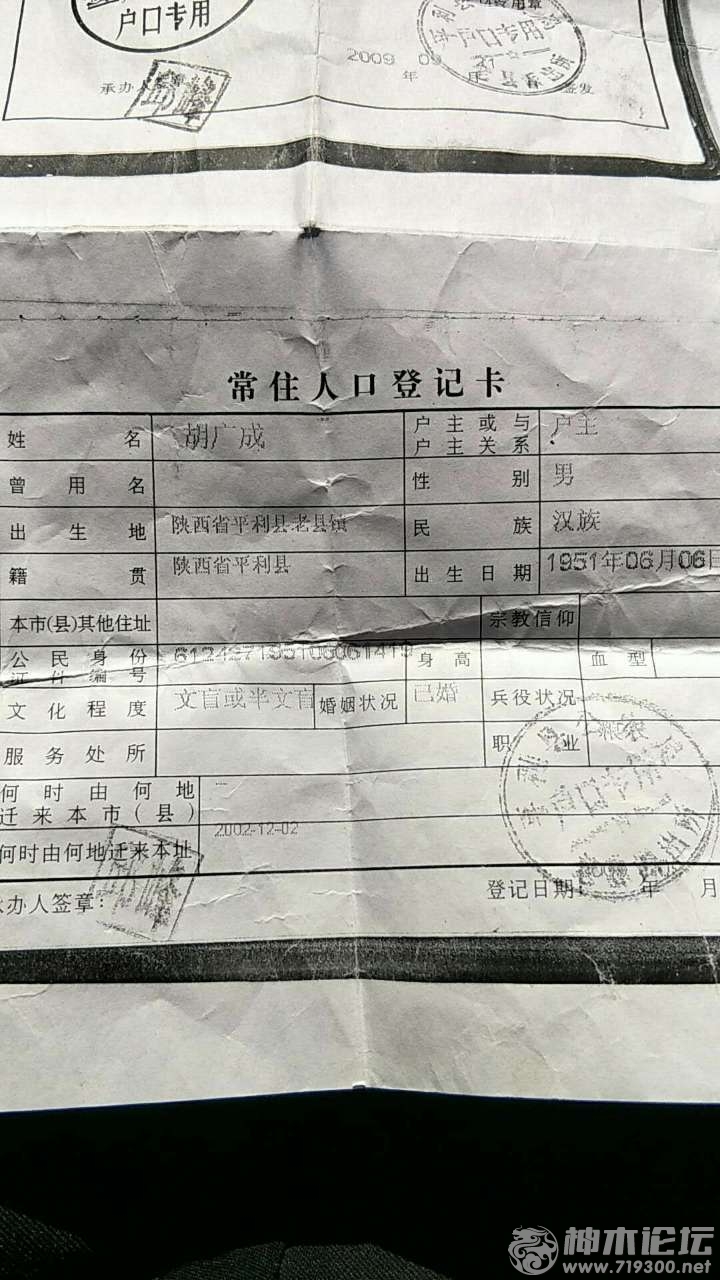 户口专用
户口专用
2009 09 27
承办人签章
年
签发
常住人口登记卡
姓名 胡广成 户主或与户主关系 户主
曾用名 性别 男
出生地 陕西省平利县老县镇 民族 汉族
籍贯 陕西省平利县 出生日期 1951年06月06日
本市(县)其他住址 宗教信仰
公民身份证件编号 身高 血型
文化程度 文盲或半文盲 婚姻状况 已婚 兵役状况
服务处所 职业 粮农
何时由何地迁来本市(县)
何时由何地迁来本址 2002-12-02
承办人签章: 登记日期: 年 月
神木论坛
www.719300.net